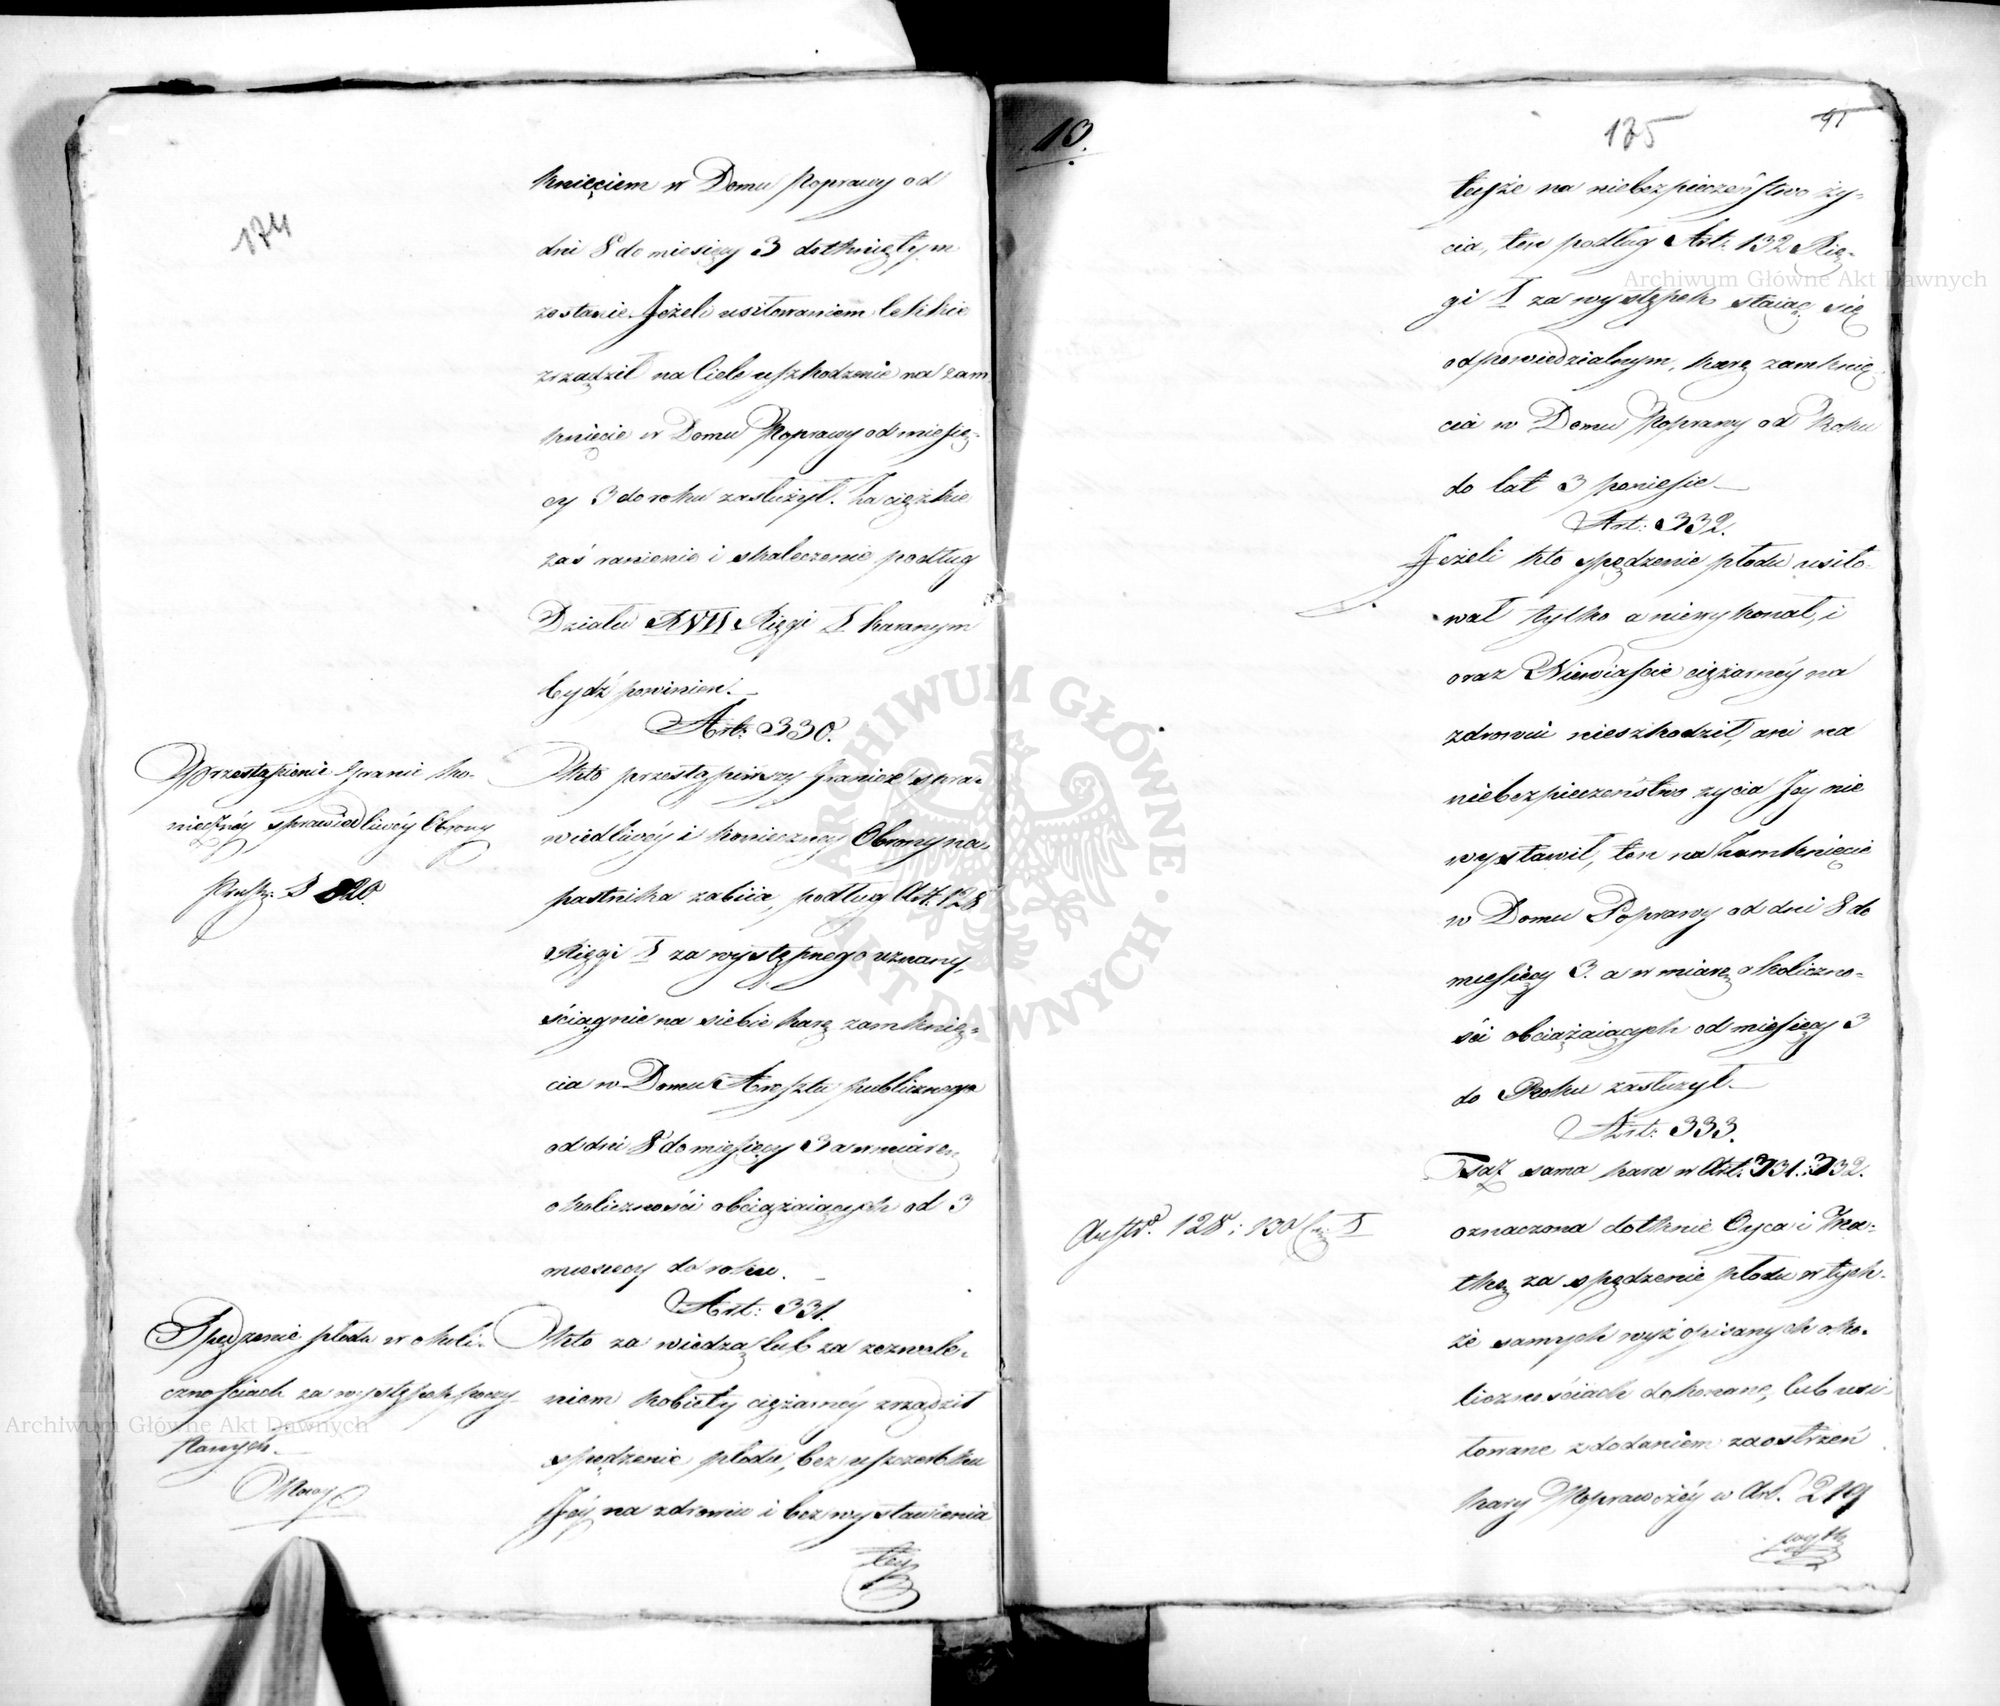 174
knięciem w Domu Poprawy od
dni 8 do miesięcy 3 dotkniętym
zostanie. Jeżeli usiłowaniem lekkie
zrządził na Ciele uszkodzenie na zam
knięcie w Domu Poprawy od miesię-
cy 3 do roku zasłużył. Za ciężkie
zaś ranienie i skaleczenie podług
Działu XVII Księgi I karanym
bydź powinien.
Art: 330.
Przestąpienie Granic ko-
niecznéy sprawiedliwéy Obrony
Prusk: § 820.
Kto przestąpiwszy Granice spra-
wiedliwéy i konieczney Obrony na-
pastnika zabiia, podług Art. 128
Księgi I za występnego uznany,
ściągnie na siebie karę zamknię-
cia w Domu Aresztu publicznego
od dni 8 do miesięcy 3 a w miarę
okoliczności obciążaiących od 3
miesięcy do roku.
Art: 331.
Spędzenie płodu w okoli-
cznościach za występek poczy
tanych.
Nowy
Kto za wiedzą lub za zezwole-
niem kobiety ciężarnéy zrządził
spędzenie płodu, bez uszczerbku
Jéy na zdrowiu i bez wystawienia
tey
13.
175
91
teyże na niebezpieczeństwo ży-
cia, ten podług Art: 132 Księ-
gi I za występek staiąc się
odpowiedzialnym, karę zamknię
cia w Domu Poprawy od Roku
do lat 3 poniesie
Art: 332.
Jeżeli kto spędzenie płodu usiło-
wał tylko a niewykonał, i
oraz Niewiaście ciężarnéy na
zdrowiu nieszkodził, ani na
niebezpieczeństwo życia Jey nie
wystawił, ten na Zamknięcie
w Domu Poprawy od dni 8 do
miesięcy 3. a w miarę okoliczno-
ści obciążaiących od miesięcy 3
do Roku zasłużył.
Art: 333.
Taż sama kara w Art. 331. i 332.
Austr. 128 i 130 I
oznaczona dotknie Oyca i Ma-
tkę za spędzenie płodu w tych-
że samych wyż opisanych oko-
licznościach dokonane, lub usi
łowane z dodaniem zaostrzeń
kary Poprawczéy w Art. 219
wytk
Archiwum Główne Akt Dawnych
Archiwum Główne Akt Dawnych
ARCHIWUM GŁÓWNE AKT DAWNYCH